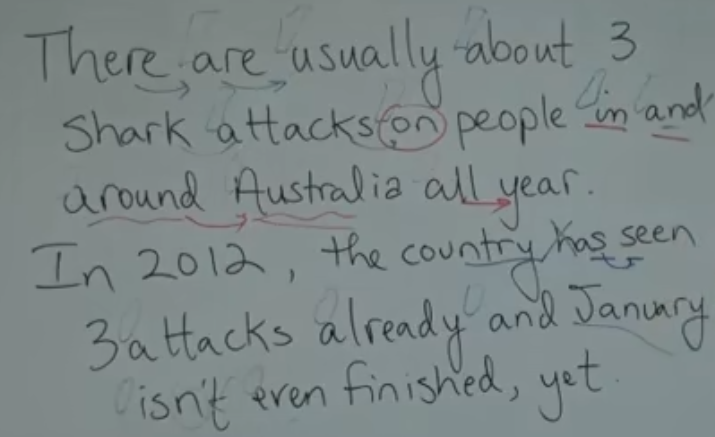 There are usually about 3
Shark attacks on people in and
around Australia all year.
In 2012, the country has seen
3 attacks already and January
isn't even finished, yet.